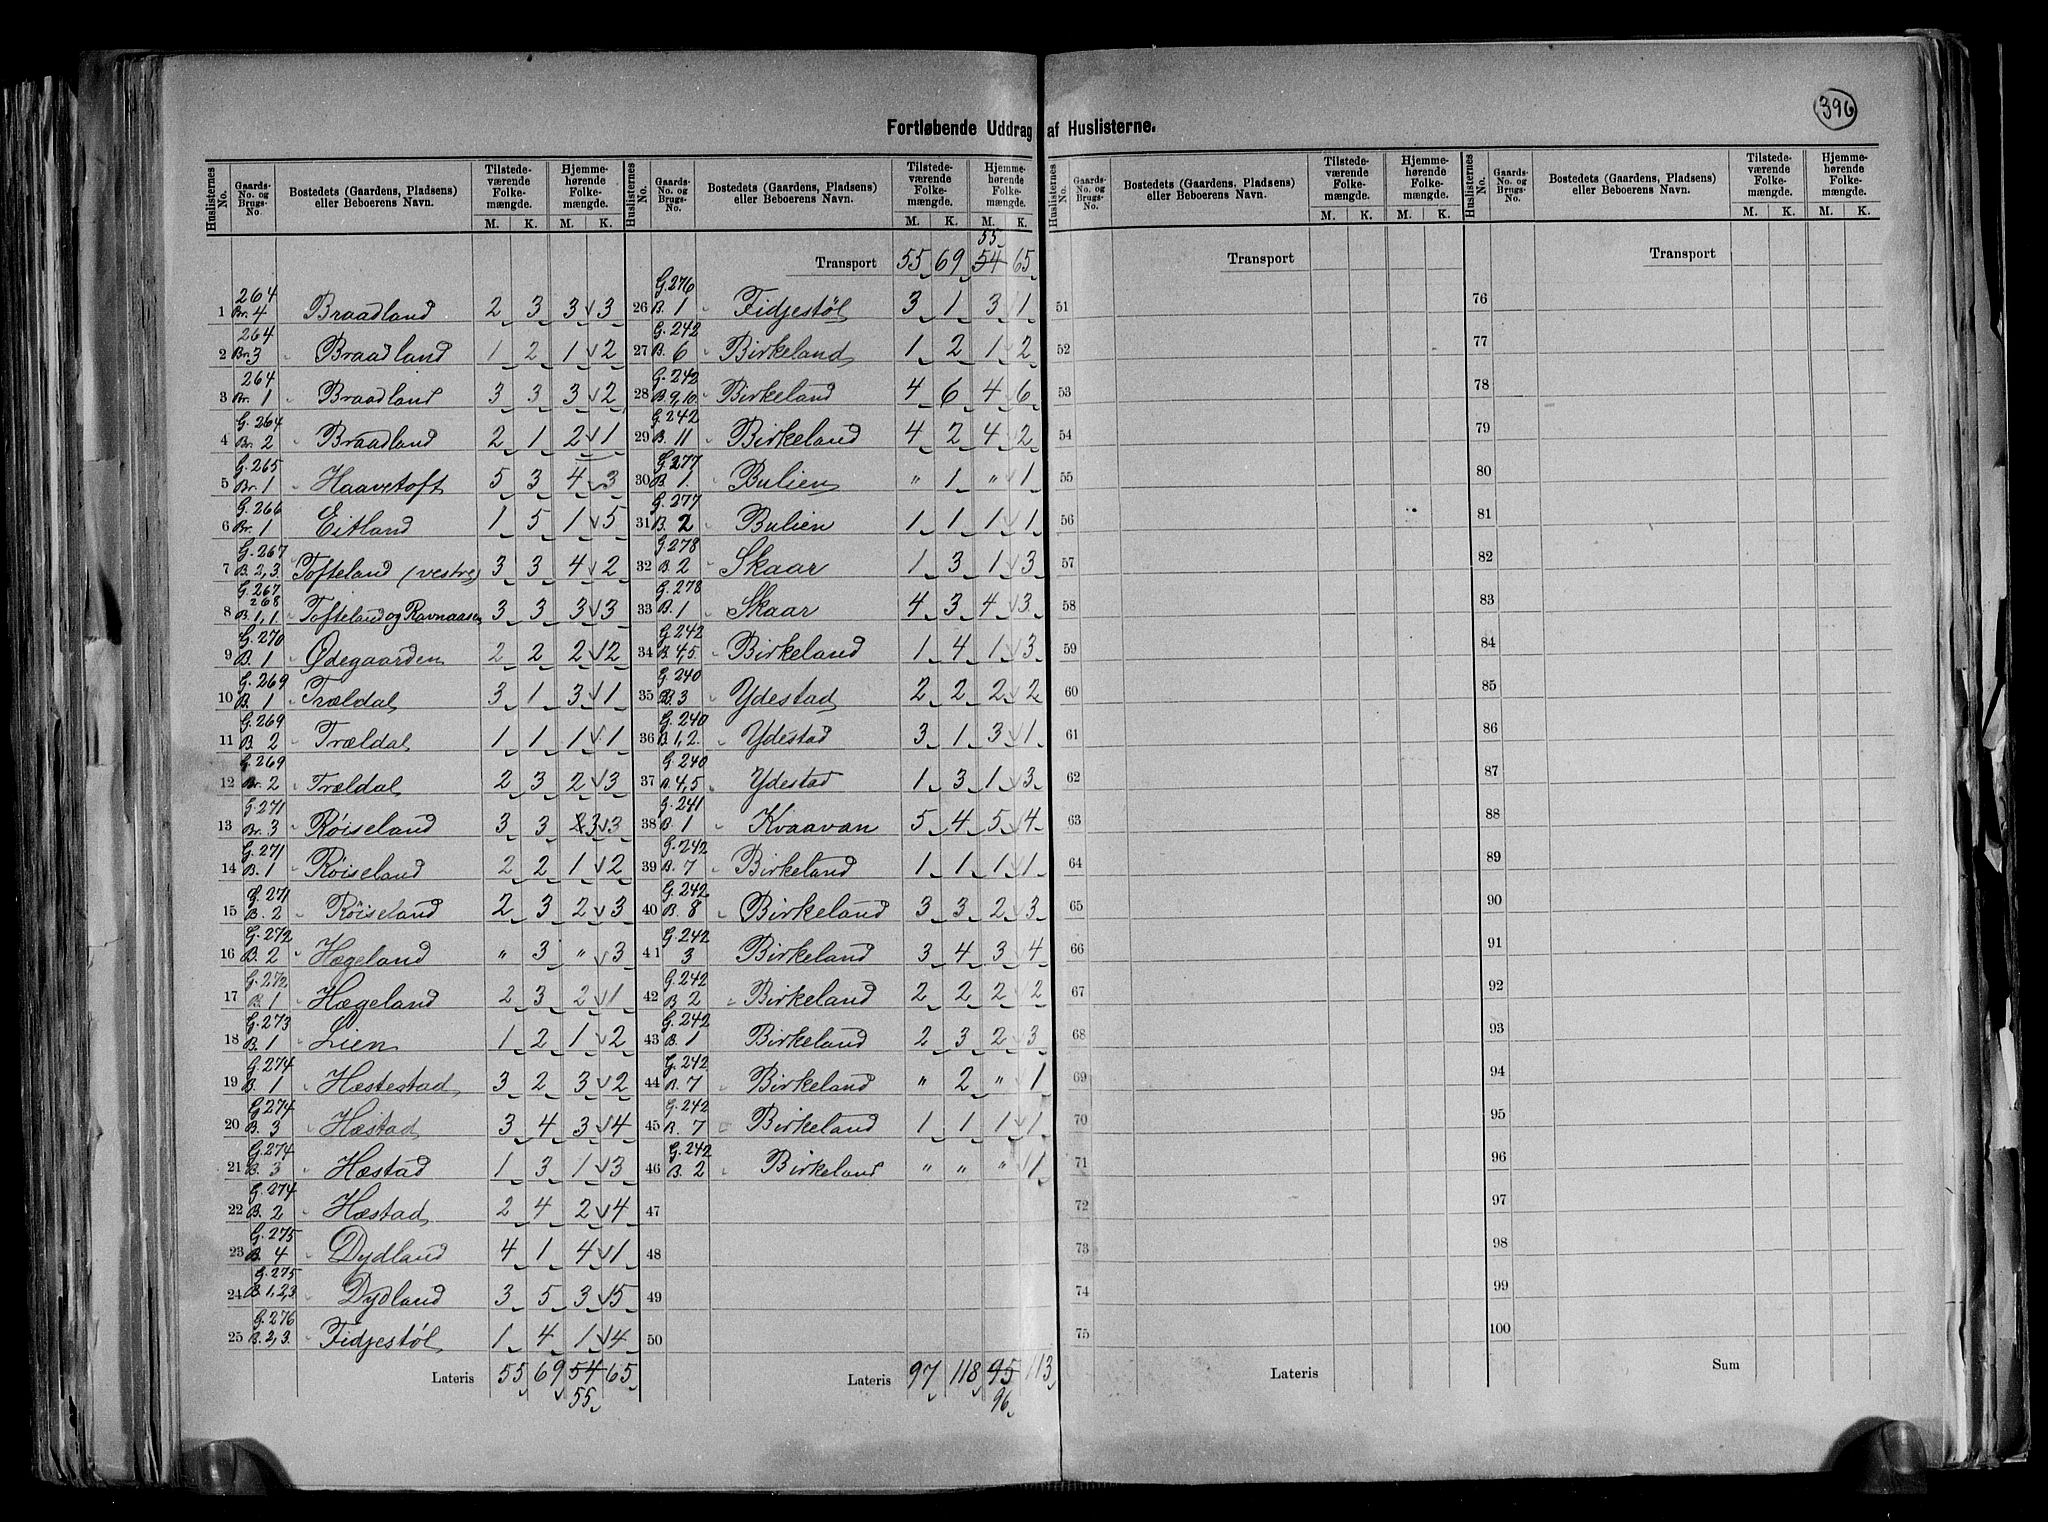 396
Fortløbende Uddrag af Huslisterne.
Huslisternes No. | Gaards-No. og Brugs-No. | Bostedets (Gaardens, Pladsens) eller Beboerens Navn. | Tilstedeværende Folkemængde. M. K. | Hjemmehørende Folkemængde. M. K.
1 264 Br. 4 Braadland 2 3 3 3
2 264 Br. 3 " Braadland 1 2 1 2
3 264 Br. 1 Braadland 3 3 3 2
4 G. 264 Br. 2 " Braadland 2 1 2 1
5 G. 265 Br. 1 " Haavetoft 5 3 4 3
6 G. 266 Br. 1 " Eitland 1 5 1 5
7 G. 267 B. 2,3 Tofteland (vestre) 3 3 4 2
8 G. 267 268 B. 1,1 " Tofteland og Ravnaasen 3 3 3 3
9 G. 270 B. 1 " Ødegaarden 2 2 2 2
10 G. 269 B. 1 " Trældal 3 1 3 1
11 G. 269 B. 2 " Trældal 1 1 1 1
12 G. 269 Br. 2 " Trældal 2 3 2 3
13 G. 271 Br. 3 " Røiseland 3 3 3 3
14 G. 271 B. 1 " Røiseland 2 2 1 2
15 G. 271 B. 2 " Røiseland 2 3 2 3
16 G. 272 B. 2 " Hægeland " 3 " 3
17 G. 272 B. 1 " Hægeland 2 3 2 1
18 G. 273 B. 1 " Lien 1 2 1 2
19 G. 274 B. 1 " Hæstestad 3 2 3 2
20 G. 274 B. 3 " Hæstad 3 4 3 4
21 G. 274 B. 3 " Hæstad 1 3 1 3
22 G. 274 B. 2 " Hæstad 2 4 2 4
23 G. 275 B. 4 " Dydland 4 1 4 1
24 G. 275 B. 1,2,3 " Dydland 3 5 3 5
25 G. 276 B. 2,3. " Fidjestøl 1 4 1 4
Lateris 55 69 54 65
55
Huslisternes No. | Gaards-No. og Brugs-No. | Bostedets (Gaardens, Pladsens) eller Beboerens Navn. | Tilstedeværende Folkemængde. M. K. | Hjemmehørende Folkemængde. M. K.
55
Transport 55 69 54 65
26 G. 276 B. 1 " Fidjestøl 3 1 3 1
27 G. 242 B. 6 " Birkeland 1 2 1 2
28 G. 242 B. 9,10 " Birkeland 4 6 4 6
29 G. 242 B. 11 " Birkeland 4 2 4 2
30 G. 277 B. 1. " Bulien " 1 " 1
31 G. 277 B. 2 " Bulien 1 1 1 1
32 G. 278 B. 2 " Skaar 1 3 1 3
33 G. 278 B. 1 " Skaar 4 3 4 3
34 G. 242 B. 4,5. " Birkeland 1 4 1 3
35 G. 240 B. 3 " Ydestad 2 2 2 2
36 G. 240 B. 1,2. " Ydestad 3 1 3 1
37 G. 240 B. 4,5 Ydestad 1 3 1 3
38 G. 241 B. 1 " Kvaavan 5 4 5 4
39 G. 242 B. 7 " Birkeland 1 1 1 1
40 G. 242 B. 8 " Birkeland 3 3 2 3
41 G. 242 3 " Birkeland 3 4 3 4
42 G. 242 B. 2 " Birkeland 2 2 2 2
43 G. 242 B. 1 Birkeland 2 3 2 3
44 G. 242 B. 7 " Birkeland " 2 " 1
45 G. 242 B. 7 " Birkeland 1 1 1 1
46 G. 242 B. 2 " Birkeland " " " 1
47
48
49
50
Lateris 97 118 95 113
96
Huslisternes No. | Gaards-No. og Brugs-No. | Bostedets (Gaardens, Pladsens) eller Beboerens Navn. | Tilstedeværende Folkemængde. M. K. | Hjemmehørende Folkemængde. M. K.
Transport
51
52
53
54
55
56
57
58
59
60
61
62
63
64
65
66
67
68
69
70
71
72
73
74
75
Lateris
Huslisternes No. | Gaards-No. og Brugs-No. | Bostedets (Gaardens, Pladsens) eller Beboerens Navn. | Tilstedeværende Folkemængde. M. K. | Hjemmehørende Folkemængde. M. K.
Transport
76
77
78
79
80
81
82
83
84
85
86
87
88
89
90
91
92
93
94
95
96
97
98
99
100
Sum